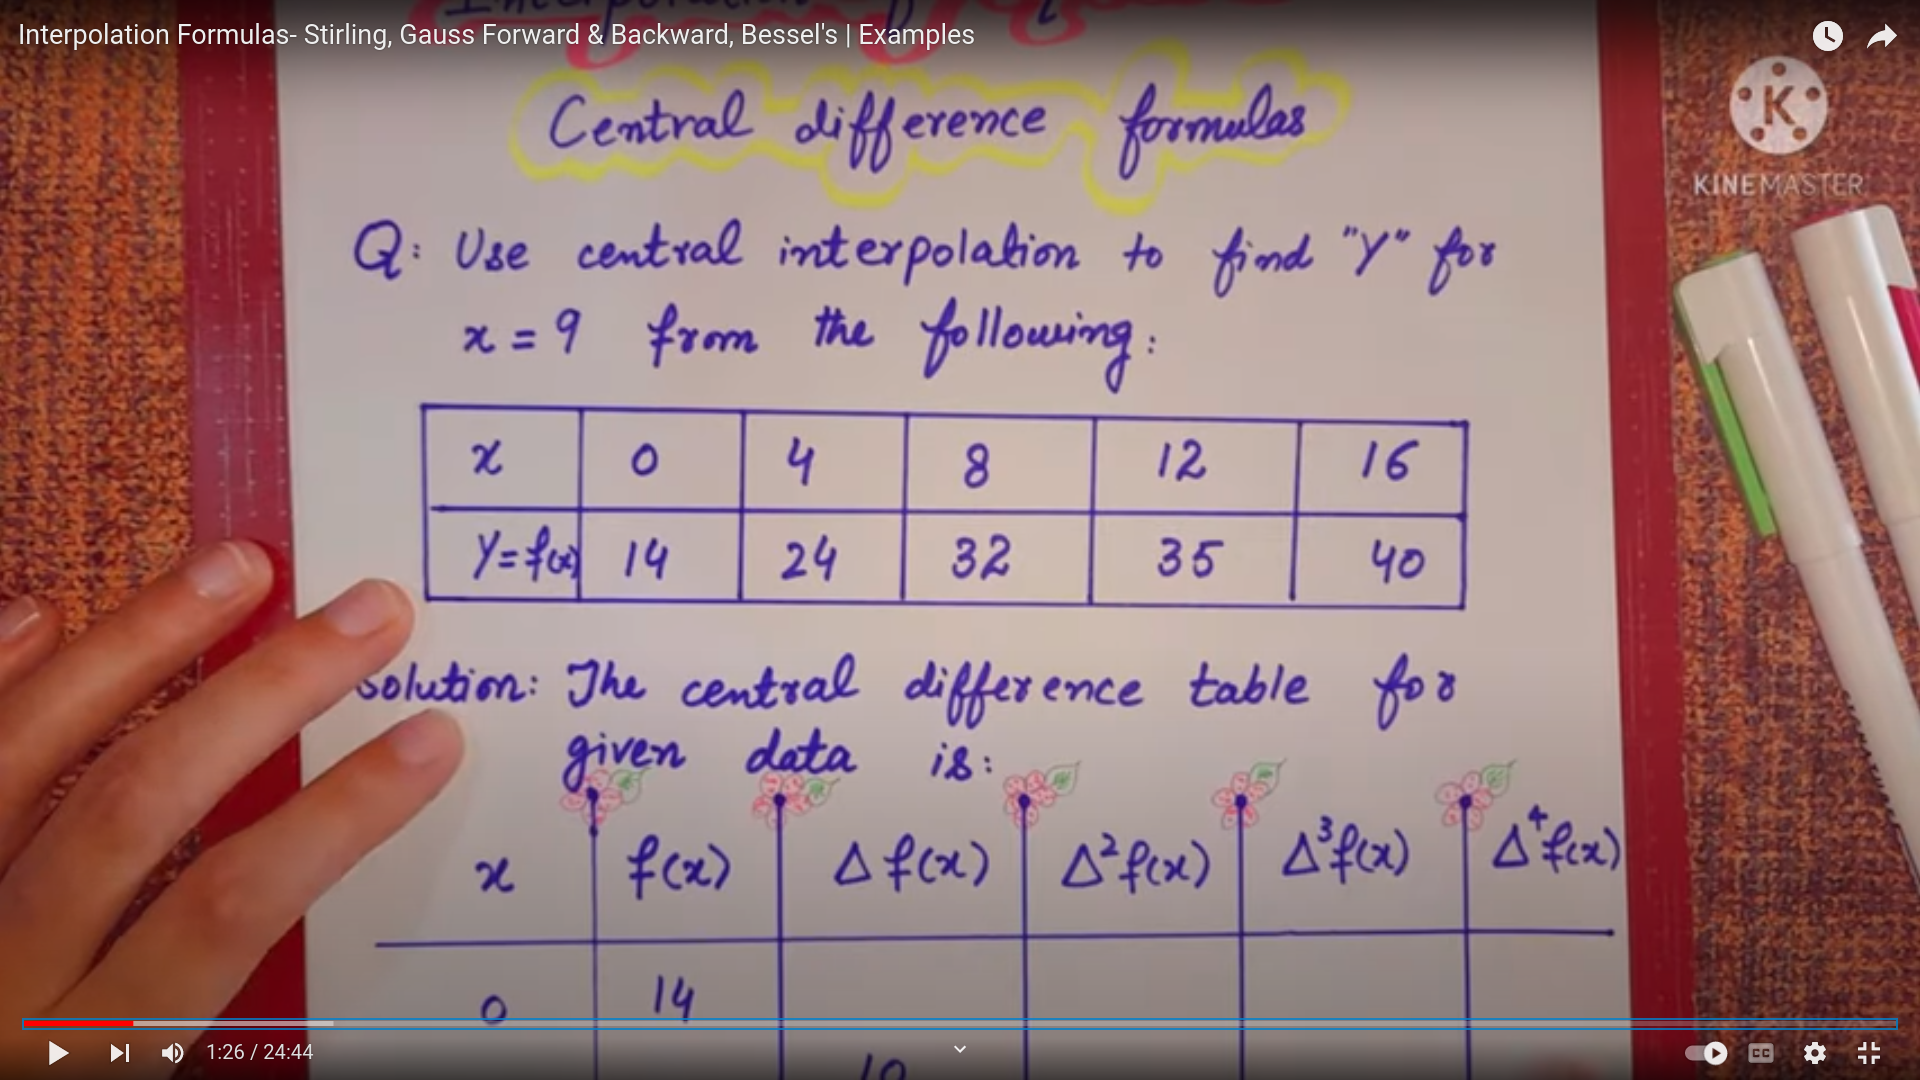 Interpolation Formulas- Stirling, Gauss Forward & Backward, Bessel's | Examples
Central difference formulas
KINEMASTER
Q: Use central interpolation to find "Y" for
x = 9 from the following:
x 0 4 8 12 16
Y=f(x) 14 24 32 35 40
Solution: The central difference table for
given data is:
x f(x) Δf(x) Δ²f(x) Δ³f(x) Δ⁴f(x)
0 14
10
1:26 / 24:44
CC